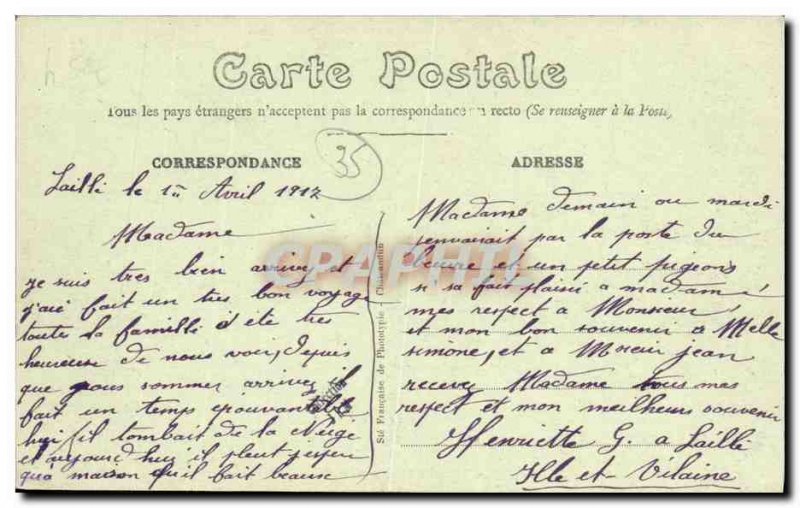 Carte Postale
Tous les pays étrangers n'acceptent pas la correspondance recto (Se renseigner à la Poste)
35
CORRESPONDANCE
Lailli le 1er Avril 1912
Madame
je suis tres bien arrivez et
j'aie fait un tres bon voyage
toute la famille d été tres
heureuse de nous voir, depuis
que nous sommer arrivez il
fait un temps epouvantable
hui il tombait de la Neige
et aujourd huis il pleut
qu'a maison qu'il fait beause
Sté Française de Phototypie
ADRESSE
Madame demain ou mardi
j'envairait par la poste du
beurre et un petit pigeons
si sa fait plaisir a madame
mes respect a Monsieur
et mon bon souvenir a Melle
simone, et a Mosieur jean
recevez Madame tous mes
respect et mon meilheurs souvenir
Henriette G. a Lailli
Ille et Vilaine
CPAPHIL